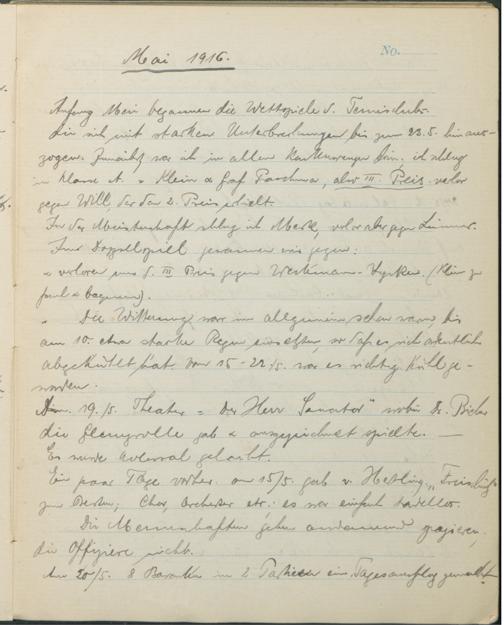 No.
Mai 1916.
Anfang Mai begannen die Wettspiele d. Tennisclubs.
die sich mit starken Unterbrechungen bis zum 23.5. hinaus-
zogen. Zunächst war ich in allen ich schlug
in Klasse A. Klein & Graf also III. Preis. verlor
gegen Will der den 2. Preis erhielt.
In der Meisterschaft schlug ich verlor aber gegen
Im Doppelspiel gewannen wir gegen:
& verloren uns d. III Preis gegen (Klein
Die Witterung war im allgemeinen schon warm, bis
am 10. etwa starke Regen einsetzten, so daß es sich ordentlich
abgekühlt hat. Vom 15-22/5. war es richtig kühl ge-
worden.
19./5. Theater = "Der Herr Senator" wobei Dr.
die gab & ausgezeichnet spielte. —
Es wurde kolossal gelacht.
Ein paar Tage vorher am 15/5. gab v. Hertling "
zum Besten; Chor, Orchester etc.: es war einfach tadellos.
Die Mannschaften gehen andauernd spazieren,
die Offiziere nicht.
Am 20/5. 8 Baracken in 2 einen Tagesausflug gemacht